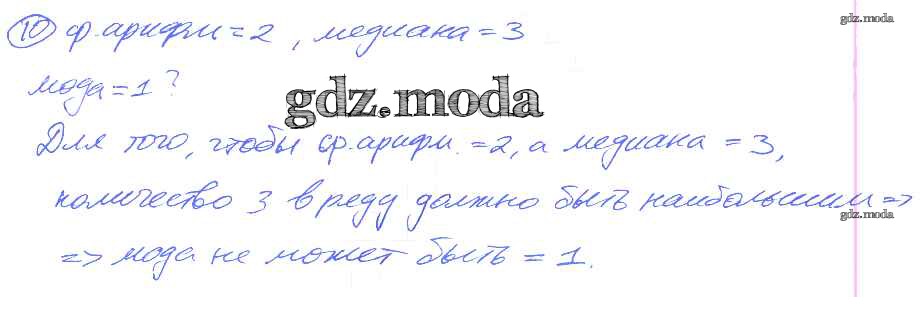 gdz.moda
10 ср. арифм = 2, медиана = 3
мода = 1?
gdz.moda
Для того, чтобы ср. арифм. = 2, а медиана = 3,
количество 3 в ряду должно быть наибольшим =>
gdz.moda
=> мода не может быть = 1.